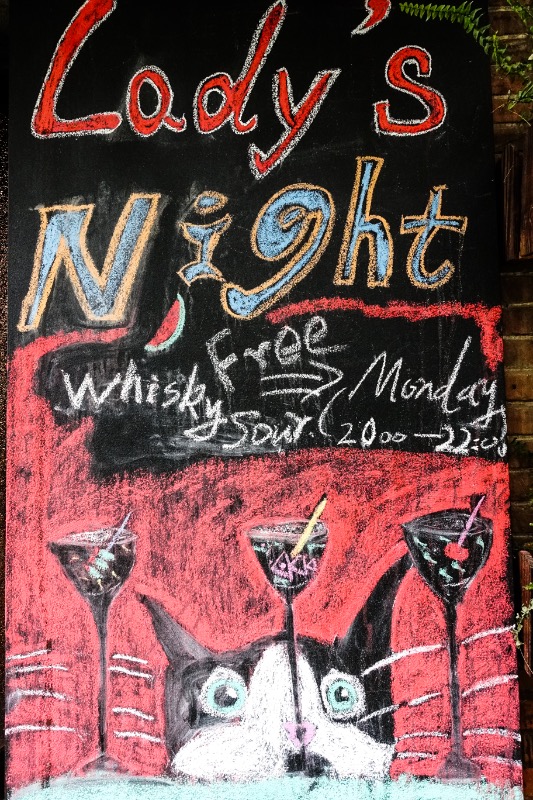 Lady's
Night
Free
Whisky
Sour. (Monday
20:00—22:00)